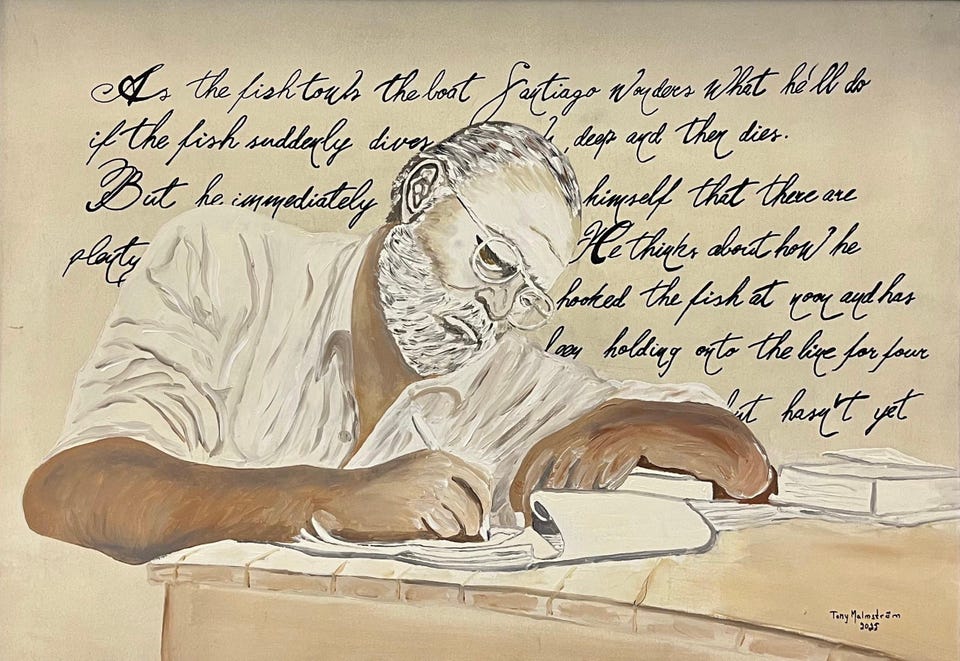 As the fish tows the boat Santiago wonders what he'll do
if the fish suddenly dives , deep and then dies.
But he immediately himself that there are
plenty He thinks about how he
hooked the fish at noon and has
been holding onto the line for four
but hasn't yet
Tony Malmström
2025